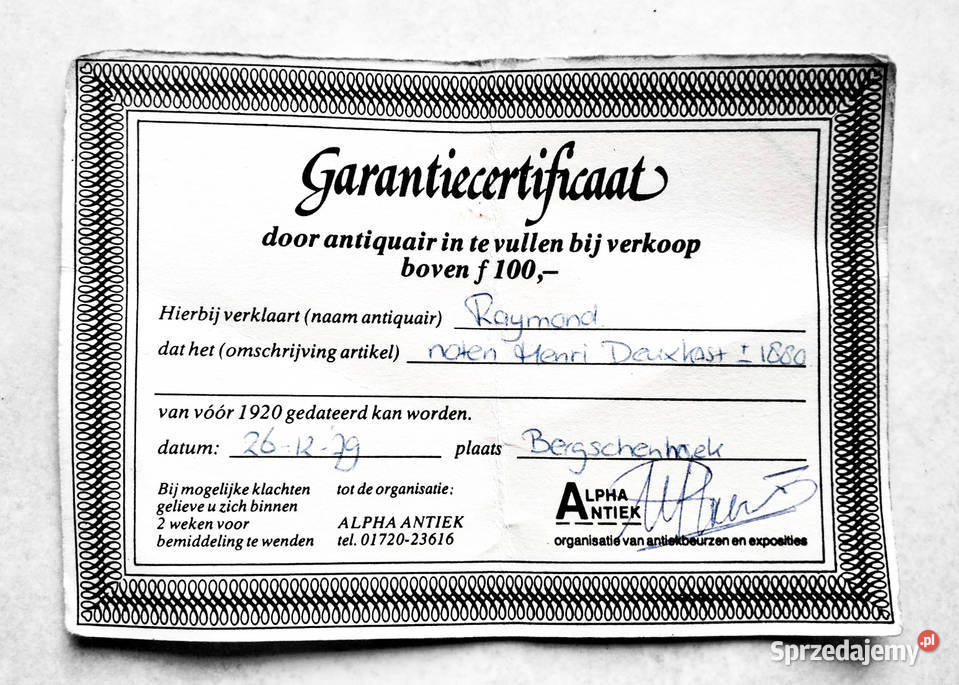 Garantiecertificaat
door antiquair in te vullen bij verkoop
boven ƒ 100,–
Hierbij verklaart (naam antiquair) Raymond
dat het (omschrijving artikel) noten Henri Deuxkast ± 1880
van vóór 1920 gedateerd kan worden.
datum: 26-12-79 plaats Bergschenhoek
Bij mogelijke klachten
gelieve u zich binnen
2 weken voor
bemiddeling te wenden
tot de organisatie:
ALPHA ANTIEK
tel. 01720-23616
ALPHA
ANTIEK
organisatie van antiekbeurzen en exposities
Sprzedajemy.pl